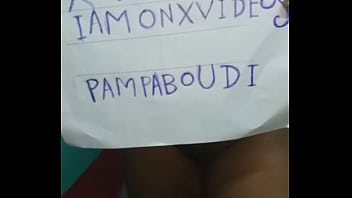 IAMONXVIDEOS
PAMPABOUDI